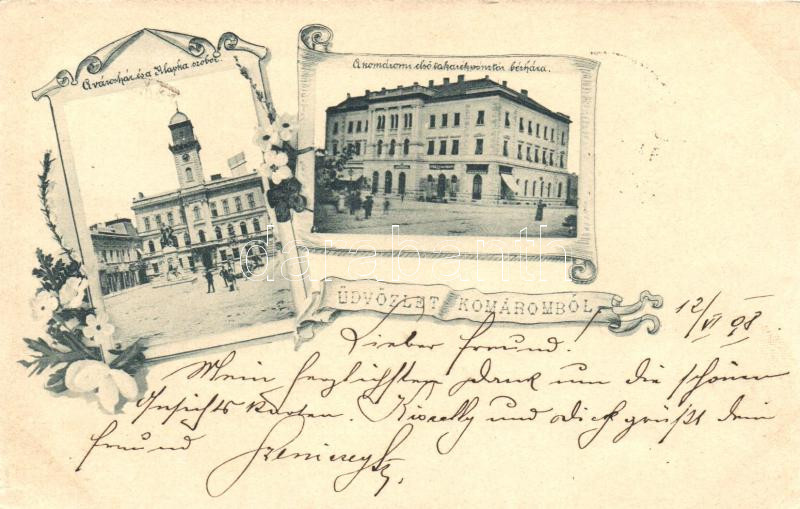 A városház és a Klapka szobor.
A komáromi első takarékpénztár bérháza.
darabanth
ÜDVÖZLET KOMÁROMBÓL
12/VI 98
Lieber Freund.
Mein herzlichsten Dank um die schönen
Ansichts Karten. und Dich grüßt dein
freund